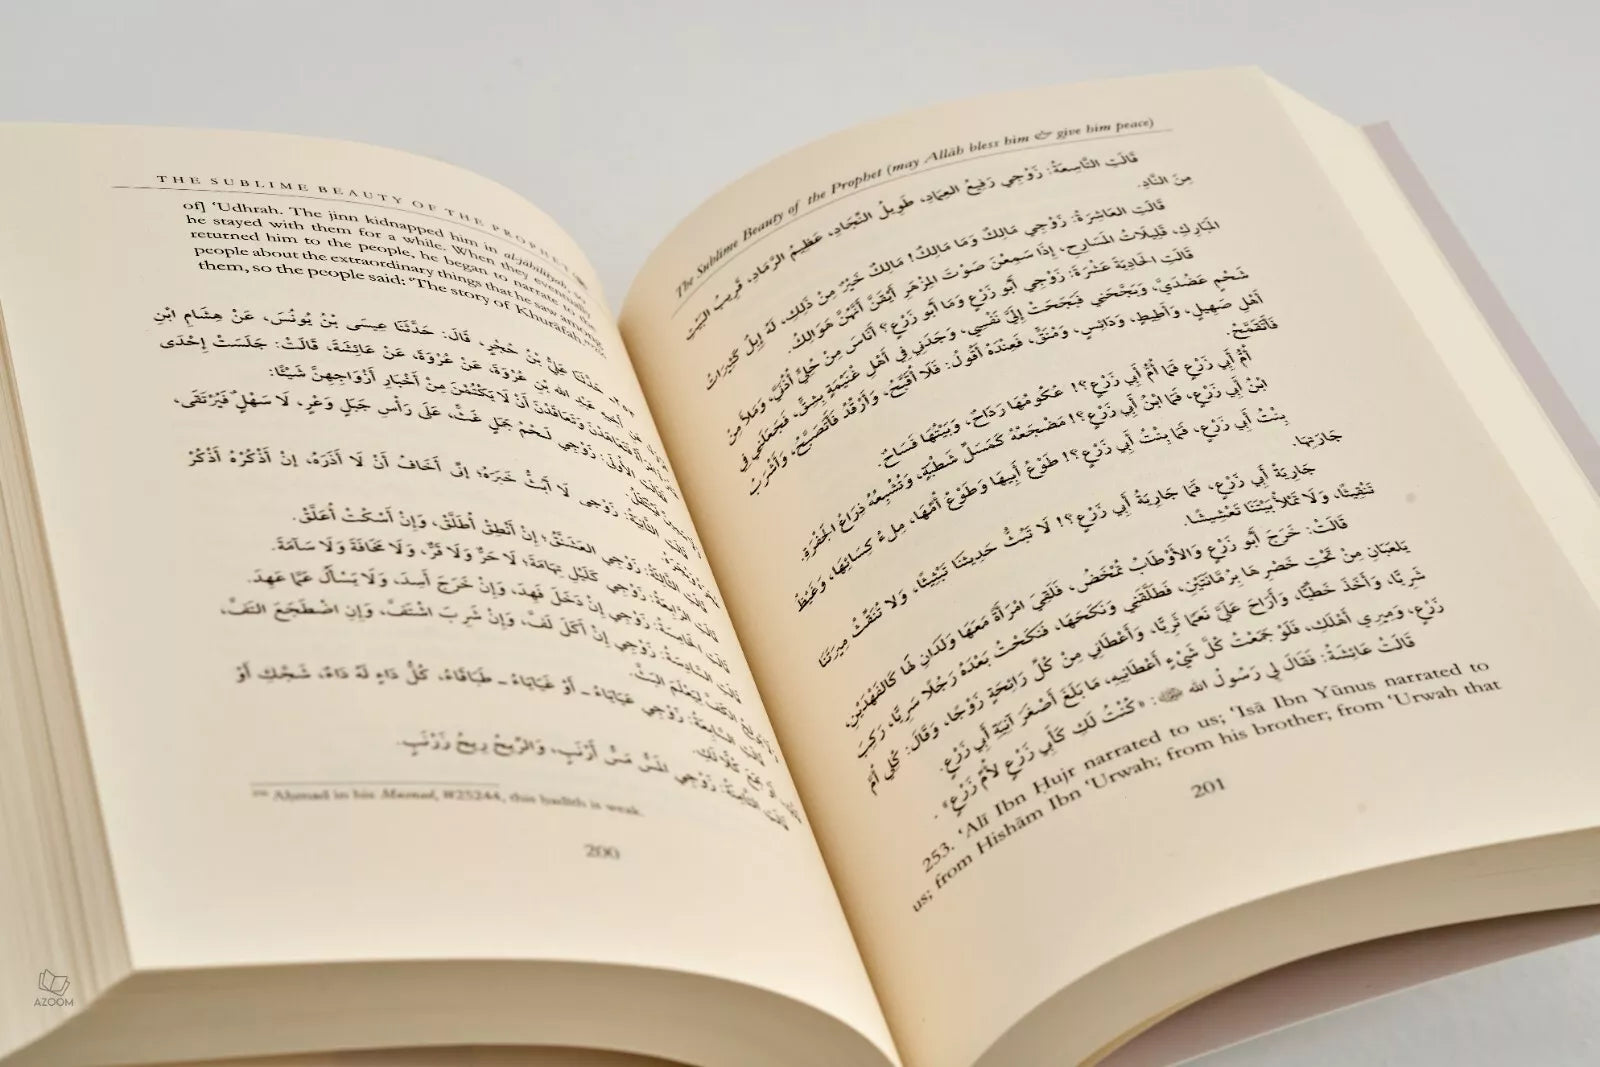 THE SUBLIME BEAUTY OF THE PROPHET
of] ‘Udhrah. The jinn kidnapped him in al-jāhiliyah, so
he stayed with them for a while. When they eventually
returned him to the people, he began to narrate to the
people about the extraordinary things that he saw among
them, so the people said: ‘The story of Khurāfah.’
حَدَّثَنَا عَلِيُّ بْنُ حُجْرٍ، قَالَ: حَدَّثَنَا عِيسَى بْنُ يُونُسَ، عَنْ هِشَامِ ابْنِ
عَبْدِ الله بْنِ عُرْوَةَ، عَنْ عُرْوَةَ، عَنْ عَائِشَةَ، قَالَتْ: جَلَسَتْ إِحْدَى
وَتَعَاقَدْنَ أَنْ لَا يَكْتُمْنَ مِنْ أَخْبَارِ أَزْوَاجِهِنَّ شَيْئًا:
الأُولَى: زَوْجِي لَحْمُ جَمَلٍ غَثٍّ، عَلَى رَأْسِ جَبَلٍ وَعْرٍ، لَا سَهْلٌ فَيُرْتَقَى،
قَالَتِ الثَّانِيَةُ: زَوْجِي لَا أَبُثُّ خَبَرَهُ؛ إِنِّي أَخَافُ أَنْ لَا أَذَرَهُ، إِنْ أَذْكُرْهُ أَذْكُرْ
قَالَتِ الثَّالِثَةُ: زَوْجِي العَشَنَّقُ؛ إِنْ أَنْطِقْ أُطَلَّقْ، وَإِنْ أَسْكُتْ أُعَلَّقْ.
قَالَتِ الرَّابِعَةُ: زَوْجِي كَلَيْلِ تِهَامَةَ؛ لَا حَرٌّ وَلَا قُرٌّ، وَلَا مَخَافَةَ وَلَا سَآمَةَ.
قَالَتِ الخَامِسَةُ: زَوْجِي إِنْ دَخَلَ فَهِدَ، وَإِنْ خَرَجَ أَسِدَ، وَلَا يَسْأَلُ عَمَّا عَهِدَ.
قَالَتِ السَّادِسَةُ: زَوْجِي إِنْ أَكَلَ لَفَّ، وَإِنْ شَرِبَ اشْتَفَّ، وَإِنِ اضْطَجَعَ التَفَّ،
وَلَا يُولِجُ الكَفَّ لِيَعْلَمَ البَثَّ.
قَالَتِ السَّابِعَةُ: زَوْجِي عَيَايَاءُ - أَوْ غَيَايَاءُ - طَبَاقَاءُ، كُلُّ دَاءٍ لَهُ دَاءٌ، شَجَّكِ أَوْ
كُلًّا لَكِ.
قَالَتِ الثَّامِنَةُ: زَوْجِي المَسُّ مَسُّ أَرْنَبٍ، وَالرِّيحُ رِيحُ زَرْنَبٍ.
Aḥmad in his Musnad, #25244, this ḥadīth is weak.
200
The Sublime Beauty of the Prophet (may Allāh bless him & give him peace)
قَالَتِ التَّاسِعَةُ: زَوْجِي رَفِيعُ العِمَادِ، طَوِيلُ النِّجَادِ، عَظِيمُ الرَّمَادِ، قَرِيبُ البَيْتِ
مِنَ النَّادِ.
قَالَتِ العَاشِرَةُ: زَوْجِي مَالِكٌ وَمَا مَالِكٌ! مَالِكٌ خَيْرٌ مِنْ ذَلِكِ، لَهُ إِبِلٌ كَثِيرَاتُ
المَبَارِكِ، قَلِيلَاتُ المَسَارِحِ، إِذَا سَمِعْنَ صَوْتَ المِزْهَرِ أَيْقَنَّ أَنَّهُنَّ هَوَالِكُ.
قَالَتِ الحَادِيَةَ عَشْرَةَ: زَوْجِي أَبُو زَرْعٍ وَمَا أَبُو زَرْعٍ؟ أَنَاسَ مِنْ حُلِيٍّ أُذُنَيَّ، وَمَلَأَ مِنْ
شَحْمٍ عَضُدَيَّ، وَبَجَّحَنِي فَبَجَحَتْ إِلَيَّ نَفْسِي، وَجَدَنِي فِي أَهْلِ غُنَيْمَةٍ بِشِقٍّ، فَجَعَلَنِي فِي
أَهْلِ صَهِيلٍ، وَأَطِيطٍ، وَدَائِسٍ، وَمُنَقٍّ، فَعِنْدَهُ أَقُولُ: فَلَا أُقَبَّحُ، وَأَرْقُدُ فَأَتَصَبَّحُ، وَأَشْرَبُ
فَأَتَقَمَّحُ.
أُمُّ أَبِي زَرْعٍ فَمَا أُمُّ أَبِي زَرْعٍ؟! عُكُومُهَا رَدَاحٌ، وَبَيْتُهَا فَسَاحٌ.
ابْنُ أَبِي زَرْعٍ، فَمَا ابْنُ أَبِي زَرْعٍ؟! مَضْجَعُهُ كَمَسَلِّ شَطْبَةٍ، وَتُشْبِعُهُ ذِرَاعُ الجَفْرَةِ.
بِنْتُ أَبِي زَرْعٍ، فَمَا بِنْتُ أَبِي زَرْعٍ؟! طَوْعُ أَبِيهَا وَطَوْعُ أُمِّهَا، مِلْءُ كِسَائِهَا، وَغَيْظُ
جَارَتِهَا.
جَارِيَةُ أَبِي زَرْعٍ، فَمَا جَارِيَةُ أَبِي زَرْعٍ؟! لَا تَبُثُّ حَدِيثَنَا تَبْثِيثًا، وَلَا تُنَقِّثُ مِيرَتَنَا
تَنْقِيثًا، وَلَا تَمْلَأُ بَيْتَنَا تَعْشِيشًا.
قَالَتْ: خَرَجَ أَبُو زَرْعٍ وَالأَوْطَابُ تُمْخَضُ، فَلَقِيَ امْرَأَةً مَعَهَا وَلَدَانِ لَهَا كَالفَهْدَيْنِ،
يَلْعَبَانِ مِنْ تَحْتِ خَصْرِهَا بِرُمَّانَتَيْنِ، فَطَلَّقَنِي وَنَكَحَهَا، فَنَكَحْتُ بَعْدَهُ رَجُلًا سَرِيًّا، رَكِبَ
شَرِيًّا، وَأَخَذَ خَطِّيًّا، وَأَرَاحَ عَلَيَّ نَعَمًا ثَرِيًّا، وَأَعْطَانِي مِنْ كُلِّ رَائِحَةٍ زَوْجًا، وَقَالَ: كُلِي أُمَّ
زَرْعٍ، وَمِيرِي أَهْلَكِ، فَلَوْ جَمَعْتُ كُلَّ شَيْءٍ أَعْطَانِيهِ، مَا بَلَغَ أَصْغَرَ آنِيَةِ أَبِي زَرْعٍ.
قَالَتْ عَائِشَةُ: فَقَالَ لِي رَسُولُ الله ﷺ: «كُنْتُ لَكِ كَأَبِي زَرْعٍ لأُمِّ زَرْعٍ».
253. ‘Alī Ibn Ḥujr narrated to us; ‘Isā Ibn Yūnus narrated to
us; from Hishām Ibn ‘Urwah; from his brother; from ‘Urwah that
201
AZOOM